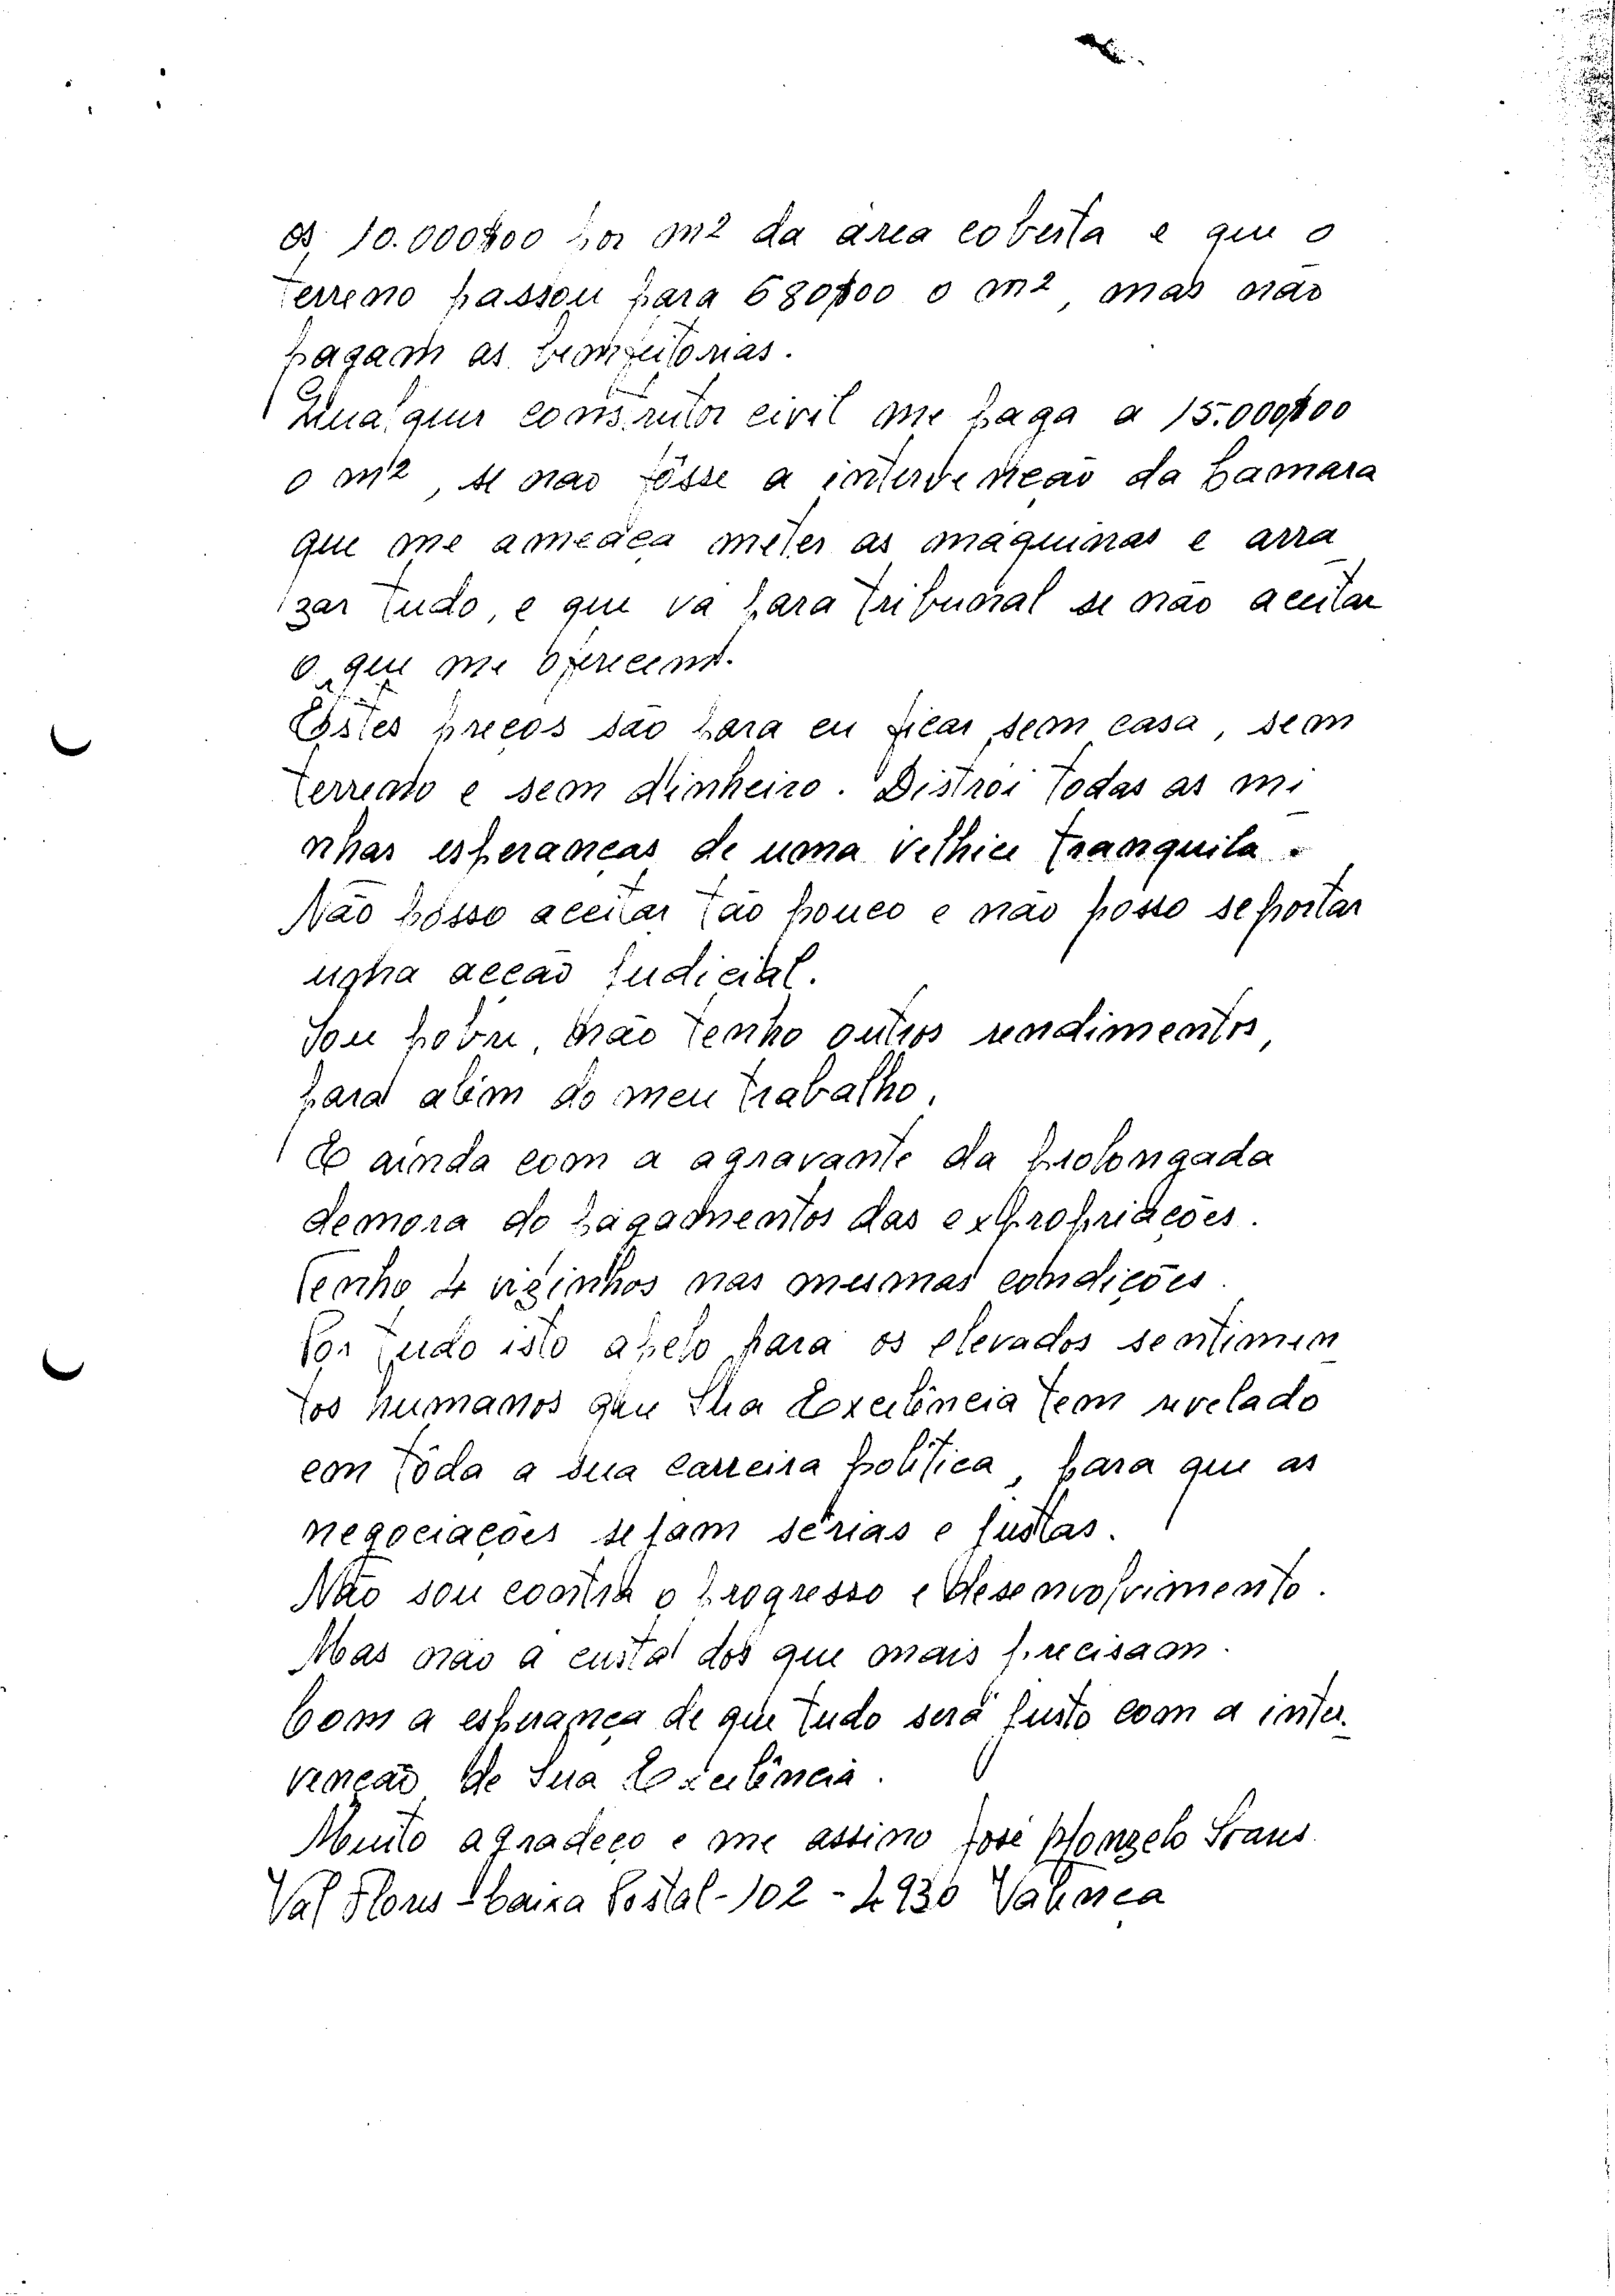 os 10.000$00 por m2 da área coberta e que o
terreno passou para 680$00 o m2, mas não
pagam as bemfeitorias.
Qualquer construtor civil me paga a 15.000$00
o m2, se não fôsse a intervenção da Camara
que me ameaça meter as máquinas e arra
zar tudo, e que vá para tribunal se não aceitar
o que me oferecem.
Estes preços são para eu ficar sem casa, sem
terreno e sem dinheiro. Distroi todas as mi
nhas esperanças de uma velhice tranquila.
Não posso aceitar tão pouco e não posso seportar
uma acção judicial.
Sou pobre, não tenho outros rendimentos,
para além do meu trabalho.
E ainda com a agravante da prolongada
demora do pagamentos das expropriações.
Tenho 4 vizinhos nas mesmas condições.
Por tudo isto apelo para os elevados sentimen
tos humanos que Sua Excelência tem revelado
em tôda a sua carreira política, para que as
negociações sejam sérias e justas.
Não sou contra o progresso e desenvolvimento.
Mas não à custa dos que mais precisam.
Com a esperança de que tudo será justo com a inter-
venção de Sua Excelência.
Muito agradeço e me assino José
Val Flores - Caixa Postal - 102 - 4930 Valença